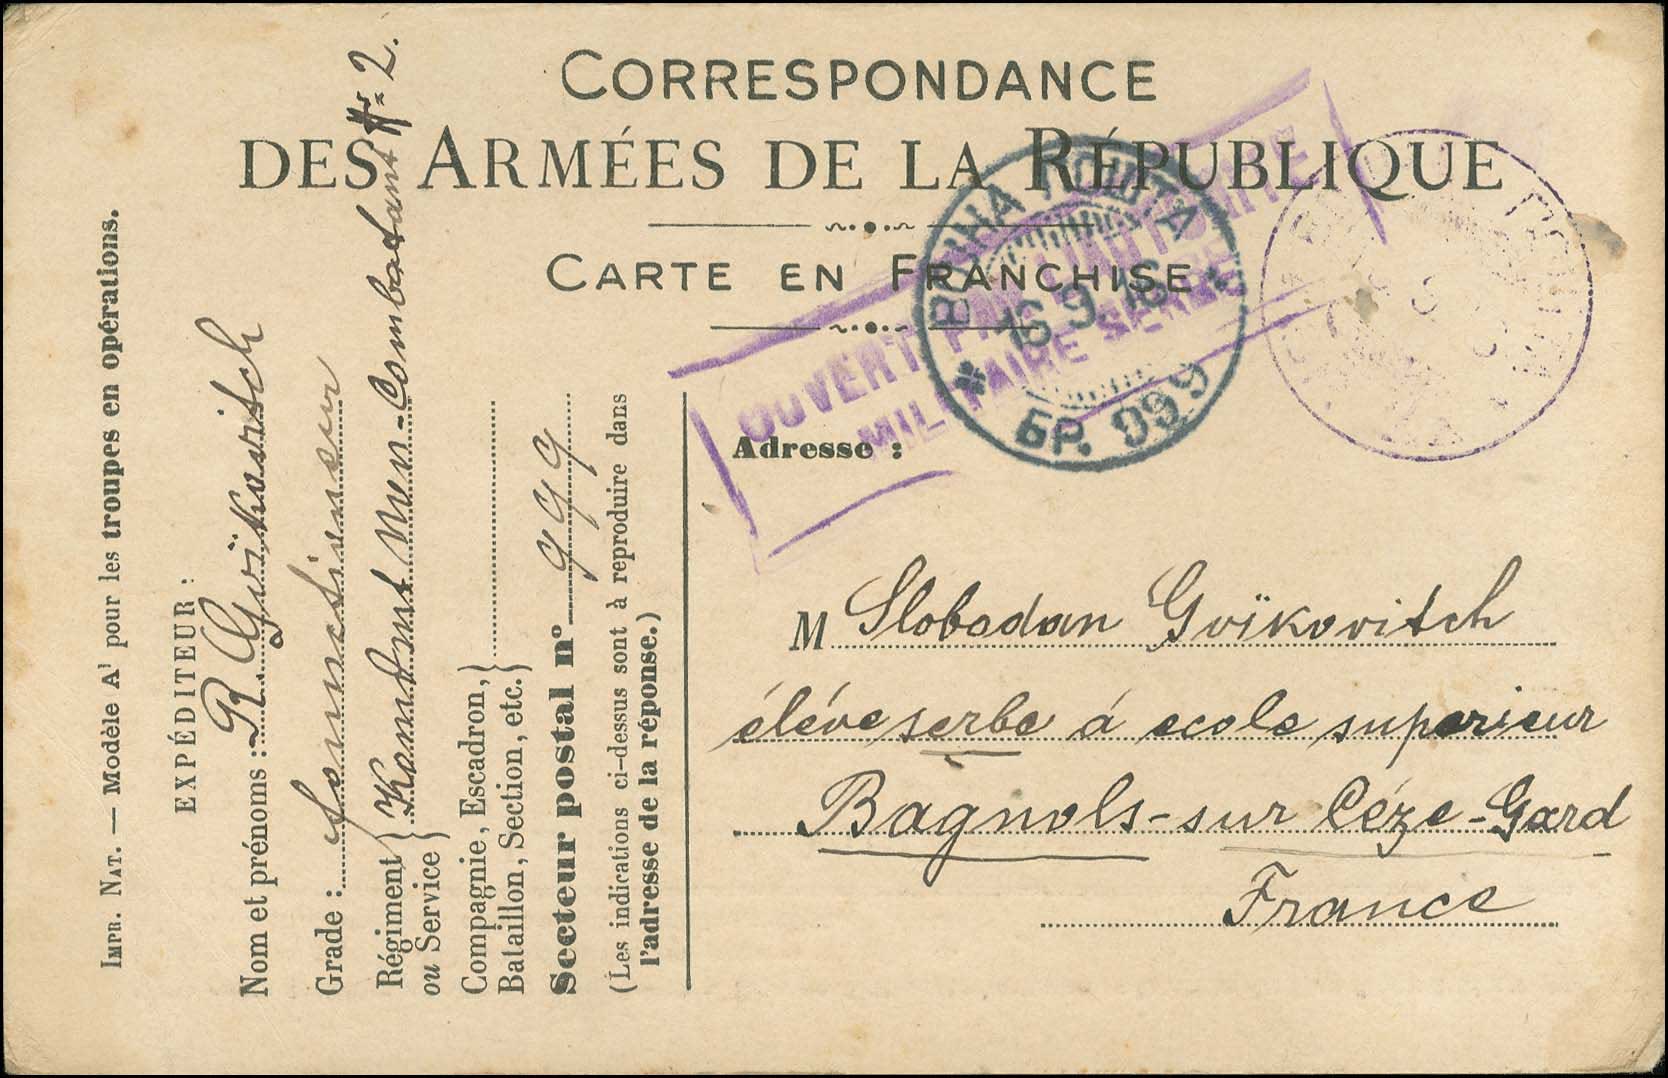 CORRESPONDANCE
DES ARMÉES DE LA RÉPUBLIQUE
CARTE EN FRANCHISE
OUVERT PAR L'AUTORITÉ
MILITAIRE SERBE
ВОЈНА ПОШТА
16.9.16
БР. 999
Impr. Nat. — Modèle A¹ pour les troupes en opérations.
EXPÉDITEUR :
Nom et prénoms : R. Gvïkovitch
Grade :
Régiment ou Service } Komdmt Nen-Combatant Nr 2.
Compagnie, Escadron, }
Bataillon, Section, etc. }
Secteur postal n° 999
(Les indications ci-dessus sont à reproduire dans
l'adresse de la réponse.)
Adresse :
M Slobodan Gvïkovitch
éléve serbe á ecole superieur
Bagnols-sur Céze-Gard
France